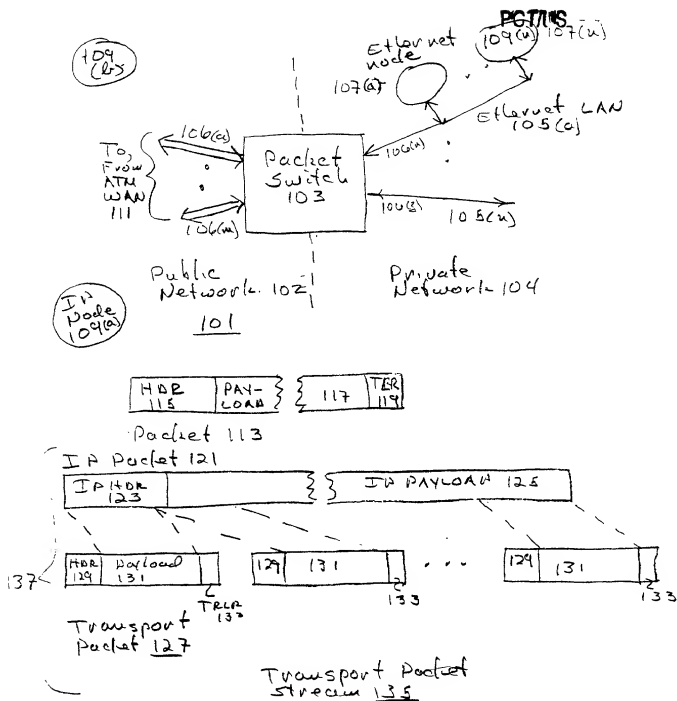 PCT/US
109
(b)
Ethernet
node
107(a)
109(n)
107(n)
Ethernet LAN
105(a)
To,
From
ATM
WAN
111
106(a)
106(m)
Packet
Switch
103
106(n)
105(n)
Public
Network 102
101
Private
Network 104
IP
Node
109(a)
HDR
115
PAY-
LOAD
117
TLR
119
Packet 113
IP Packet 121
IP HDR
123
IP PAYLOAD 125
137
HDR
129
Payload
131
TRLR
133
129
131
133
...
129
131
133
Transport
Packet 127
Transport Packet
Stream 135